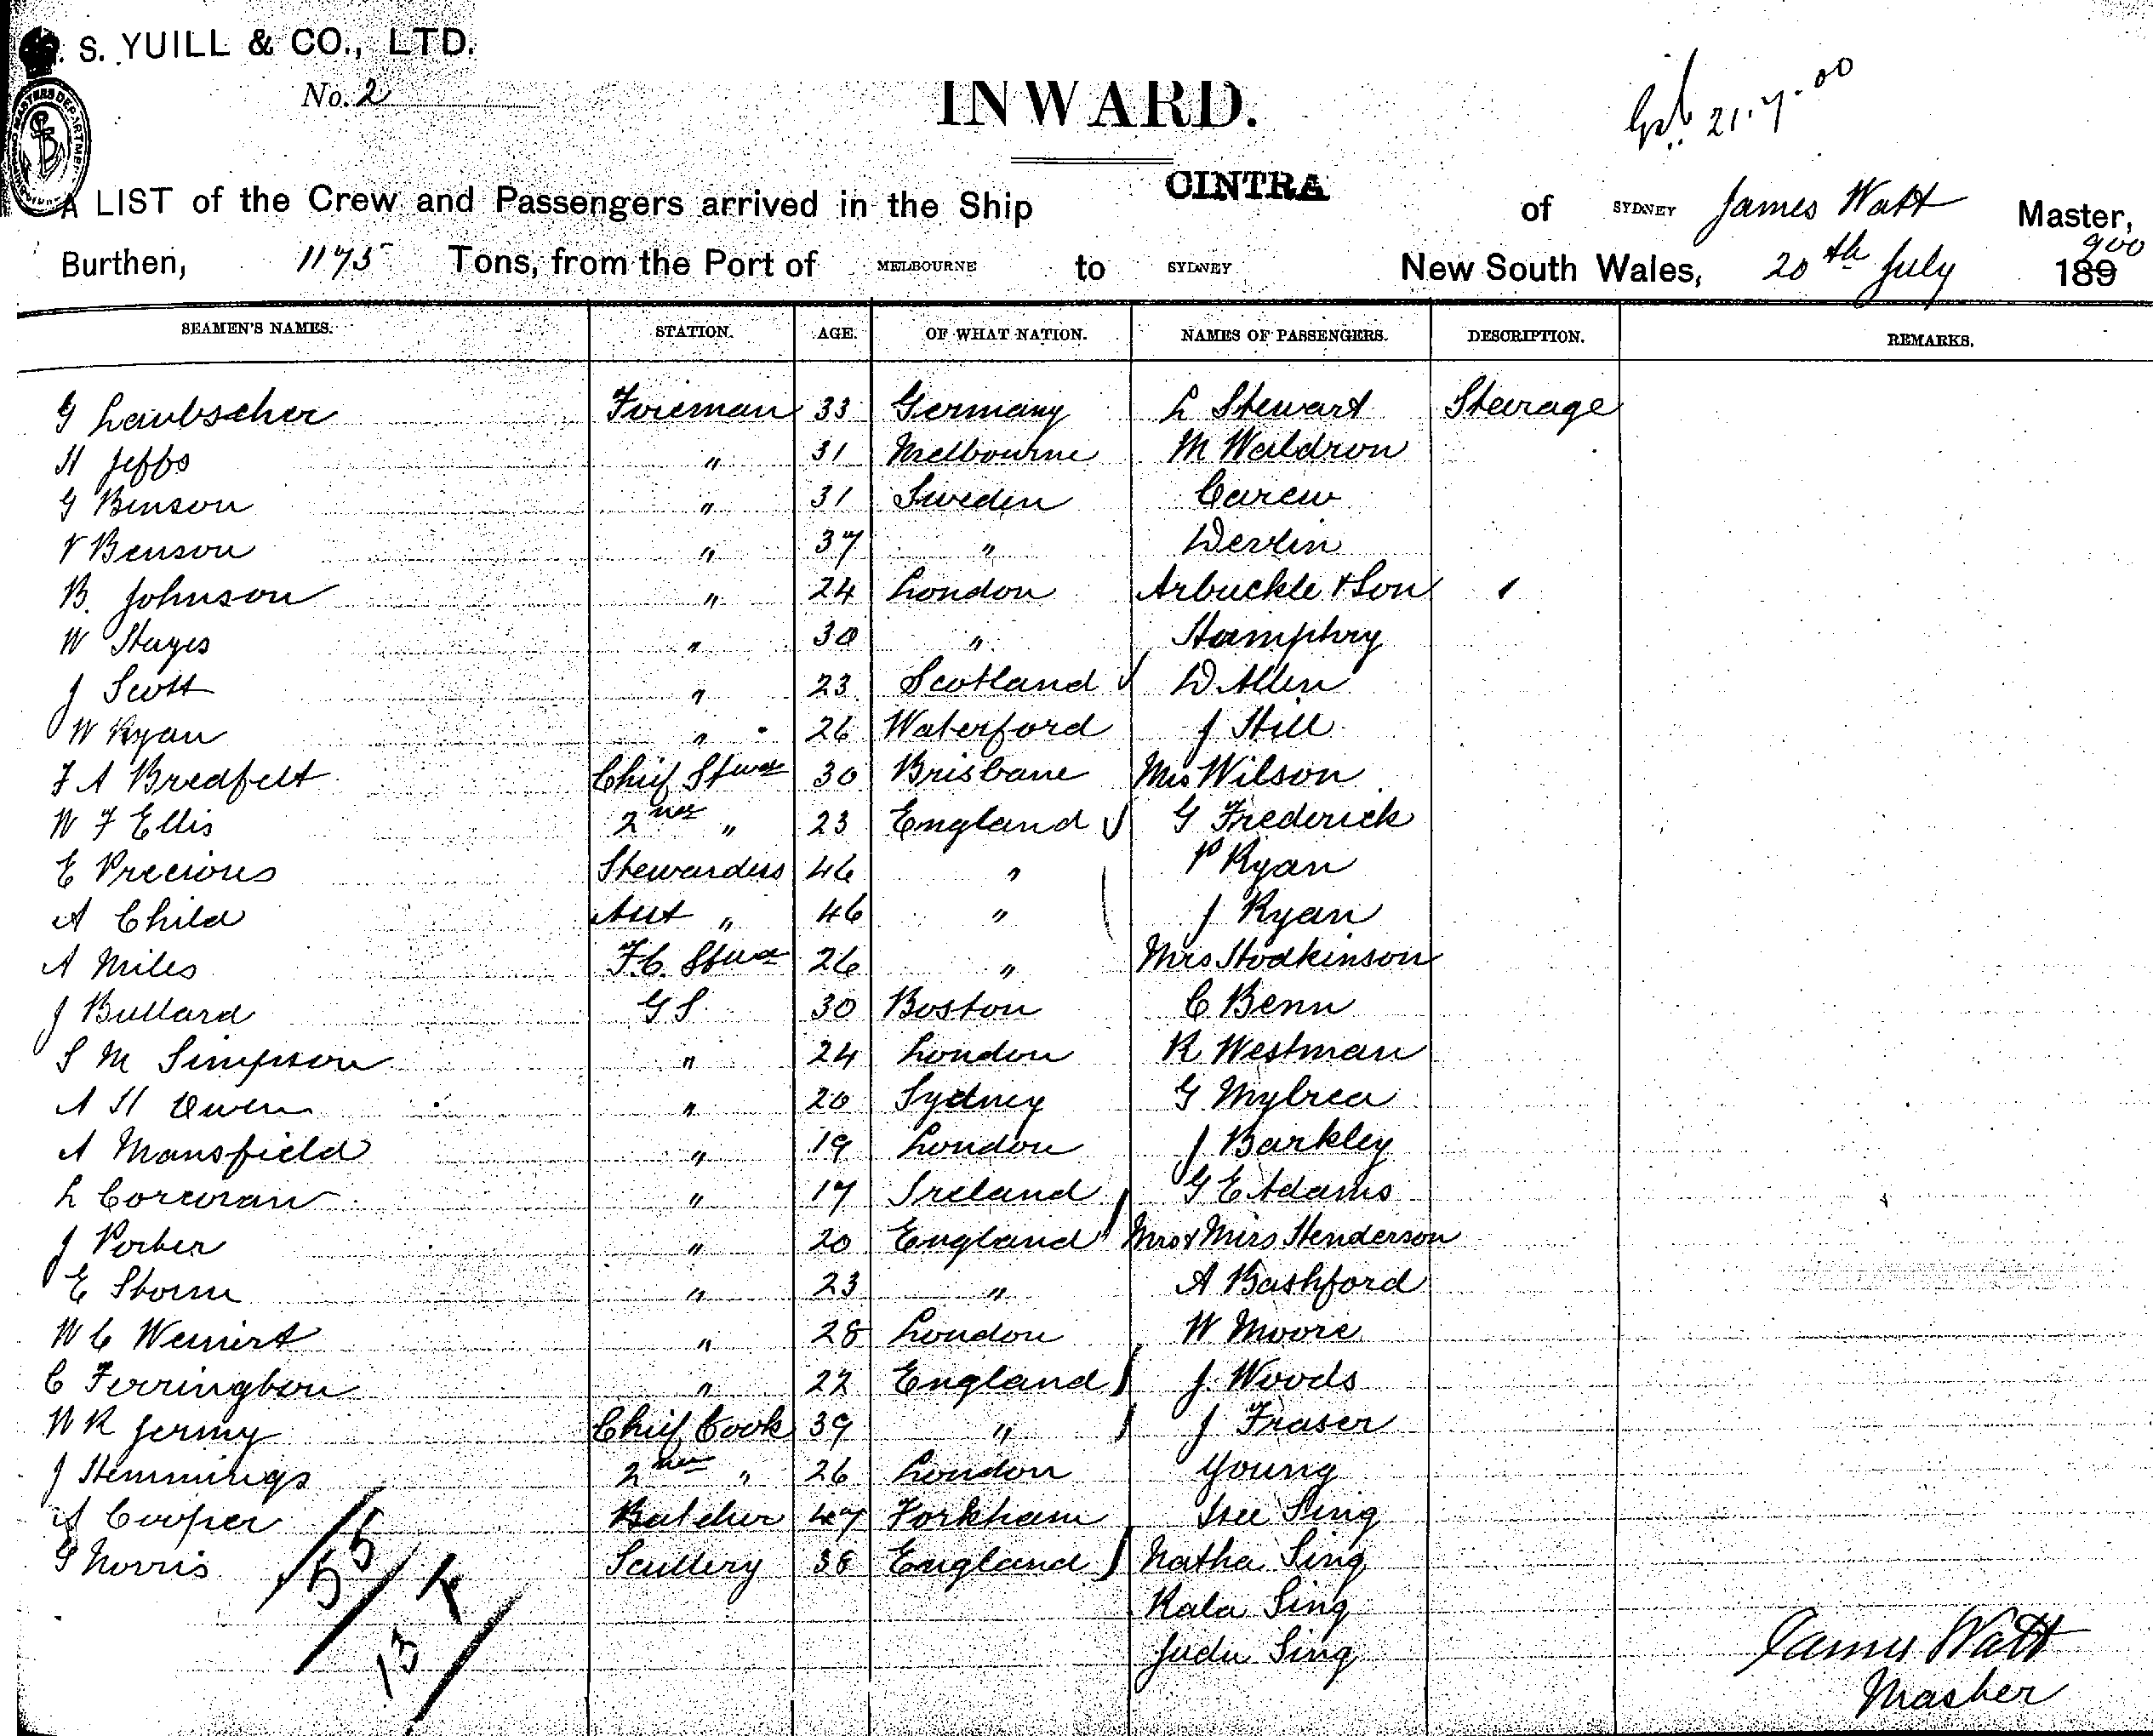 . S. YUILL & CO., LTD.
No. 2
INWARD.
21.7.00
A LIST of the Crew and Passengers arrived in the Ship CINTRA of SYDNEY James Watt Master,
Burthen, 1175 Tons, from the Port of MELBOURNE to SYDNEY New South Wales, 20th July 189 900
SEAMEN'S NAMES. STATION. AGE. OF WHAT NATION. NAMES OF PASSENGERS. DESCRIPTION. REMARKS.
G Laubscher Fireman 33 Germany L Stewart Steerage
H Jeffs " 31 Melbourne M Waldron
G Benson " 31 Sweden Carew
V Benson " 37 " Devlin
B. Johnson " 24 London Arbuckle & Son
W Stayes " 30 " Hamphry
J Scott " 23 Scotland D Allen
W Ryan " 26 Waterford J Hill
F A Bredfelt Chief Stwd 30 Brisbane Mrs Wilson
W F Ellis 2nd " 23 England G Frederick
E Precious Stewardess 46 " P Ryan
A Child Asst " 46 " J Ryan
A Miles F.C. Stwd 26 " Mrs Hodkinson
J Bullard G S 30 Boston C Benn
S M Simpson " 24 London R Westman
A H Owen " 20 Sydney G Mylrea
A Mansfield " 19 London J Barkley
L Corcoran " 17 Ireland G E Adams
J Porter " 20 England Mrs & Miss Henderson
E Storm " 23 " A Bashford
W C Weinert " 28 London W Moore
C Ferrington " 22 England J. Woods
W R Jermy Chief Cook 39 " J Fraser
J Hemmings 2nd " 26 London Young
A Cooper Butcher 47 Forkham Sing
G Norris Scullery 38 England Natha Sing
55 Kala Sing
13 4 Judu Sing
James Watt
Master